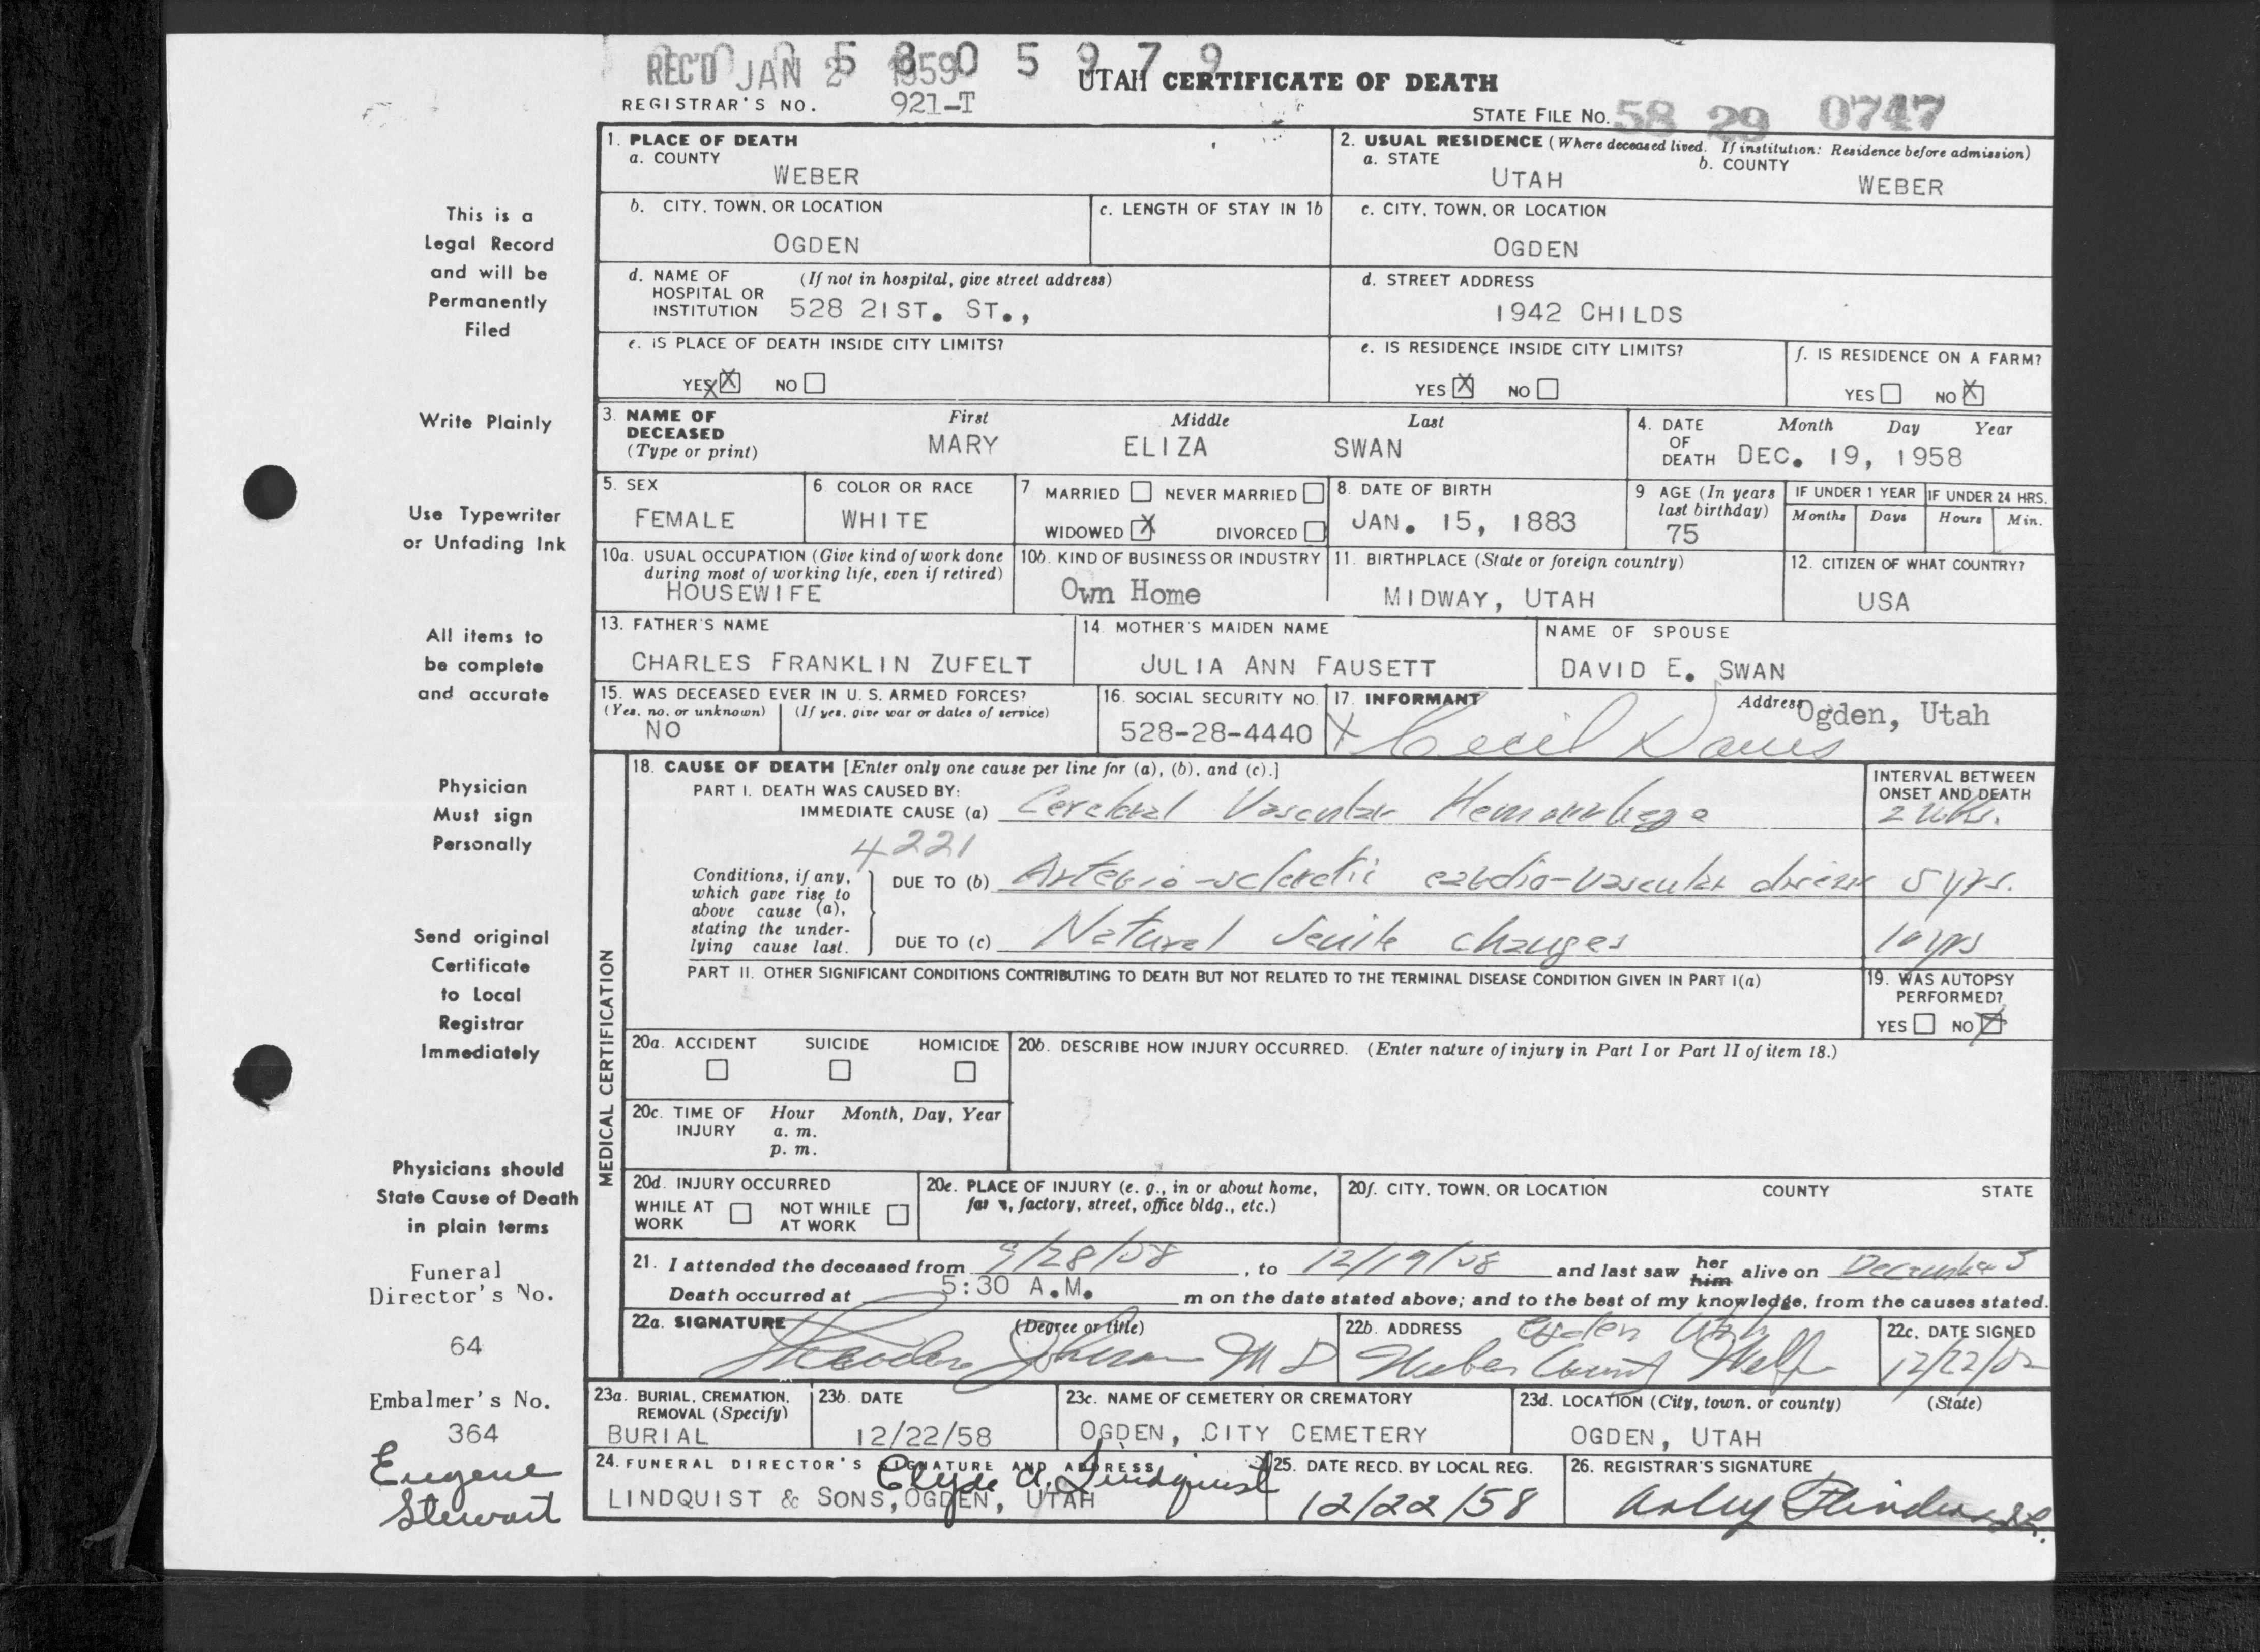 REC'D JAN 2 1959
5 8 0 5 9 7 9
UTAH CERTIFICATE OF DEATH
REGISTRAR'S NO. 921-T
STATE FILE NO. 58 29 0747
1. PLACE OF DEATH
a. COUNTY
WEBER
2. USUAL RESIDENCE (Where deceased lived. If institution: Residence before admission)
a. STATE
UTAH
b. COUNTY
WEBER
b. CITY, TOWN, OR LOCATION
OGDEN
c. LENGTH OF STAY IN 1b
c. CITY, TOWN, OR LOCATION
OGDEN
d. NAME OF (If not in hospital, give street address)
HOSPITAL OR
INSTITUTION 528 21ST. ST.,
d. STREET ADDRESS
1942 CHILDS
e. IS PLACE OF DEATH INSIDE CITY LIMITS?
YES X NO
e. IS RESIDENCE INSIDE CITY LIMITS?
YES X NO
f. IS RESIDENCE ON A FARM?
YES NO X
3. NAME OF DECEASED (Type or print)
First Middle Last
MARY ELIZA SWAN
4. DATE OF DEATH
Month Day Year
DEC. 19, 1958
5. SEX
FEMALE
6 COLOR OR RACE
WHITE
7 MARRIED NEVER MARRIED
WIDOWED X DIVORCED
8. DATE OF BIRTH
JAN. 15, 1883
9 AGE (In years
last birthday)
75
IF UNDER 1 YEAR
Months Days
IF UNDER 24 HRS.
Hours Min.
10a. USUAL OCCUPATION (Give kind of work done
during most of working life, even if retired)
HOUSEWIFE
10b. KIND OF BUSINESS OR INDUSTRY
Own Home
11. BIRTHPLACE (State or foreign country)
MIDWAY, UTAH
12. CITIZEN OF WHAT COUNTRY?
USA
13. FATHER'S NAME
CHARLES FRANKLIN ZUFELT
14. MOTHER'S MAIDEN NAME
JULIA ANN FAUSETT
NAME OF SPOUSE
DAVID E. SWAN
15. WAS DECEASED EVER IN U. S. ARMED FORCES?
(Yes, no, or unknown) (If yes, give war or dates of service)
NO
16. SOCIAL SECURITY NO.
528-28-4440
17. INFORMANT
X Cecil Daves
Address Ogden, Utah
MEDICAL CERTIFICATION
18. CAUSE OF DEATH [Enter only one cause per line for (a), (b), and (c).]
INTERVAL BETWEEN
ONSET AND DEATH
PART I. DEATH WAS CAUSED BY:
IMMEDIATE CAUSE (a) Cerebral Vascular Hemorrhage 2 wks.
4221
Conditions, if any,
which gave rise to
above cause (a),
stating the under-
lying cause last.
DUE TO (b) Arterio-sclerotic cardio-vascular disease 5 yrs.
DUE TO (c) Natural Senile changes 10 yrs
PART II. OTHER SIGNIFICANT CONDITIONS CONTRIBUTING TO DEATH BUT NOT RELATED TO THE TERMINAL DISEASE CONDITION GIVEN IN PART I(a)
19. WAS AUTOPSY
PERFORMED?
YES NO X
20a. ACCIDENT SUICIDE HOMICIDE
20b. DESCRIBE HOW INJURY OCCURRED. (Enter nature of injury in Part I or Part II of item 18.)
20c. TIME OF INJURY Hour Month, Day, Year
a. m.
p. m.
20d. INJURY OCCURRED
WHILE AT WORK NOT WHILE AT WORK
20e. PLACE OF INJURY (e. g., in or about home,
farm, factory, street, office bldg., etc.)
20f. CITY, TOWN, OR LOCATION COUNTY STATE
21. I attended the deceased from 9/28/58, to 12/19/58 and last saw her him alive on December 5
Death occurred at 5:30 A.M. m on the date stated above; and to the best of my knowledge, from the causes stated.
22a. SIGNATURE (Degree or title)
M D
22b. ADDRESS
Ogden Utah
Weber County
22c. DATE SIGNED
23a. BURIAL, CREMATION,
REMOVAL (Specify)
BURIAL
23b. DATE
12/22/58
23c. NAME OF CEMETERY OR CREMATORY
OGDEN, CITY CEMETERY
23d. LOCATION (City, town, or county) (State)
OGDEN, UTAH
24. FUNERAL DIRECTOR'S SIGNATURE AND ADDRESS
Clyde A. Lindquist
LINDQUIST & SONS, OGDEN, UTAH
25. DATE RECD. BY LOCAL REG.
12/22/58
26. REGISTRAR'S SIGNATURE
This is a
Legal Record
and will be
Permanently
Filed
Write Plainly
Use Typewriter
or Unfading Ink
All items to
be complete
and accurate
Physician
Must sign
Personally
Send original
Certificate
to Local
Registrar
Immediately
Physicians should
State Cause of Death
in plain terms
Funeral
Director's No.
64
Embalmer's No.
364
Eugene
Stewart